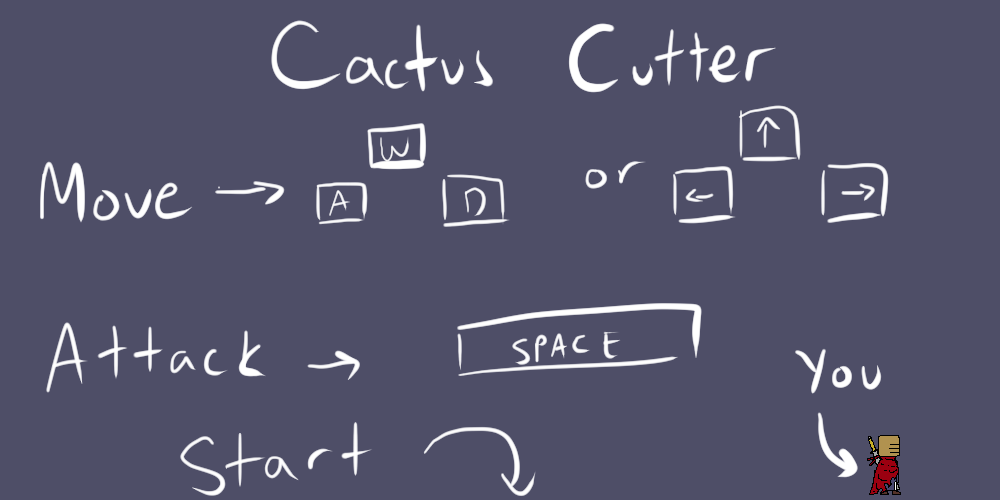 Cactus Cutter
W ↑
Move → A D or ← →
Attack → SPACE
You
Start